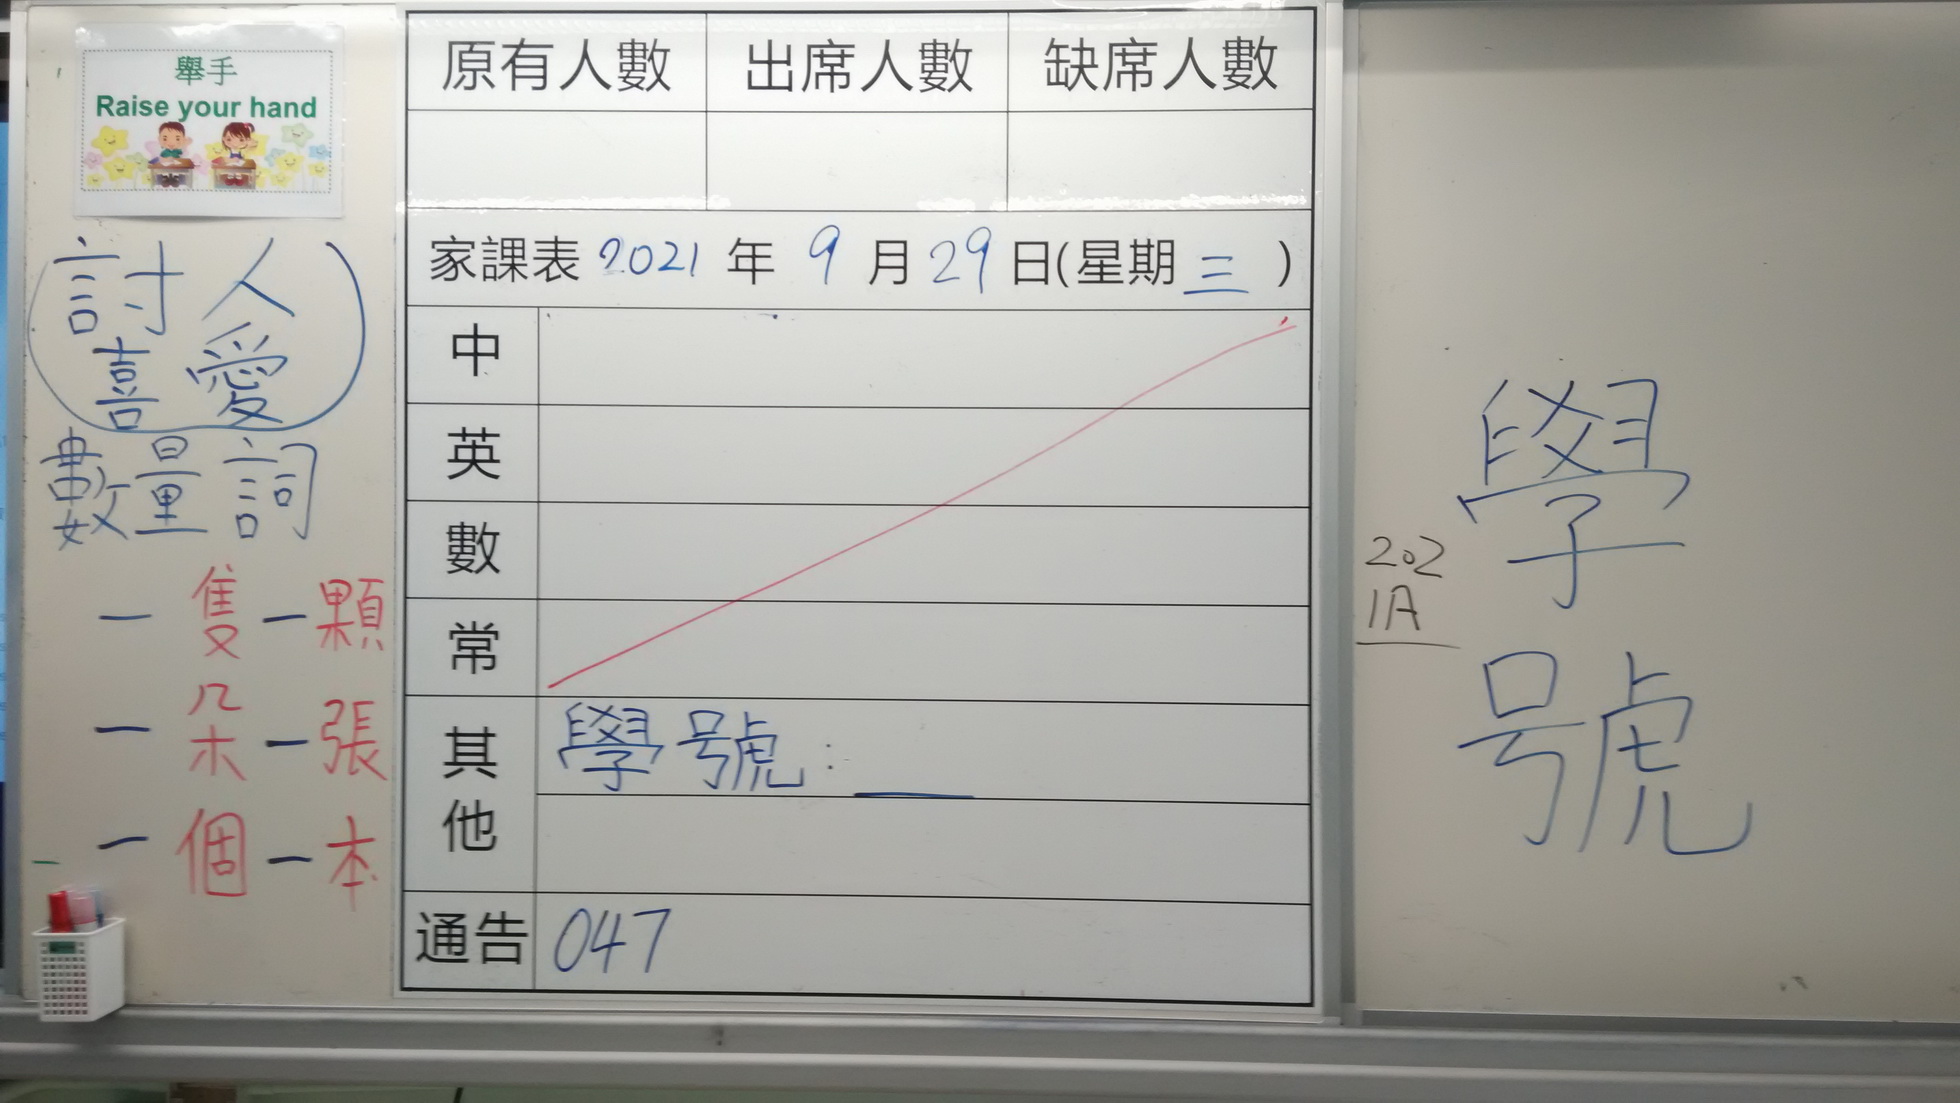 舉手
Raise your hand
討人
喜愛
數量詞
一隻一顆
一朵一張
一個一本
原有人數 出席人數 缺席人數
家課表 2021 年 9 月 29 日(星期 三 )
中
英
數
常
其他 學號:
通告 047
202
1A
學
號